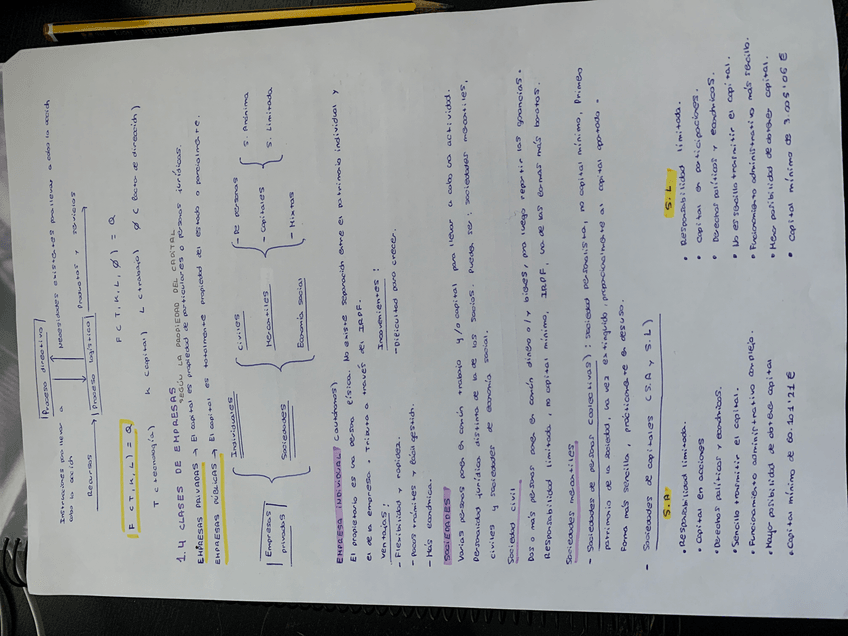 Proceso directivo
Instrucciones para llevar a cabo la acción
Necesidades existentes para llevar a cabo la acción
Recursos
Proceso logístico
Productos y servicios
F (T, K, L) = Q
F (T, K, L, Ø) = Q
T (tecnología) K (capital) L (trabajo) Ø (factor de dirección)
1.4 CLASES DE EMPRESAS
SEGÚN LA PROPIEDAD DEL CAPITAL
EMPRESAS PRIVADAS → El capital es propiedad de particulares o personas jurídicas.
EMPRESAS PÚBLICAS → El capital es totalmente propiedad del estado o parcialmente.
Empresas privadas
Individuales
Sociedades
Civiles
Mercantiles
Economía social
- De personas
- Capitales
- Mixtas
S. Anónima
S. Limitada
EMPRESA INDIVIDUAL (autónomo)
El propietario es una persona física. No existe separación entre el patrimonio individual y
el de la empresa. Tributa a través del IRPF.
Ventajas:
- Flexibilidad y rapidez.
- Pocos trámites y fácil gestión.
- Más económica.
Inconvenientes:
- Dificultad para crecer.
SOCIEDADES
Varias personas ponen en común trabajo y/o capital para llevar a cabo una actividad.
Personalidad jurídica distinta de la de los socios. Pueden ser: sociedades mercantiles,
civiles y sociedades de economía social.
Sociedad civil
Dos o más personas ponen en común dinero o/y bienes, para luego repartir las ganancias.
Responsabilidad limitada, no capital mínimo, IRPF, una de las formas más baratas.
Sociedades mercantiles
- Sociedades de personas (colectivas): sociedad personalista, no capital mínimo, Primero
patrimonio de la sociedad, una vez extinguido, proporcionalmente al capital aportado.
Forma más sencilla, prácticamente en desuso.
- Sociedades de capitales (S.A y S.L)
S.A
• Responsabilidad limitada.
• Capital en acciones
• Derechos políticos y económicos.
• Sencillo transmitir el capital.
• Funcionamiento administrativo complejo.
• Mayor posibilidad de obtener capital
• Capital mínimo de 60.101'21 €
S.L.
• Responsabilidad limitada.
• Capital en participaciones.
• Derechos políticos y económicos.
• No es sencillo transmitir el capital.
• Funcionamiento administrativo más sencillo.
• Menor posibilidad de obtener capital.
• Capital mínimo de 3.005'06 €